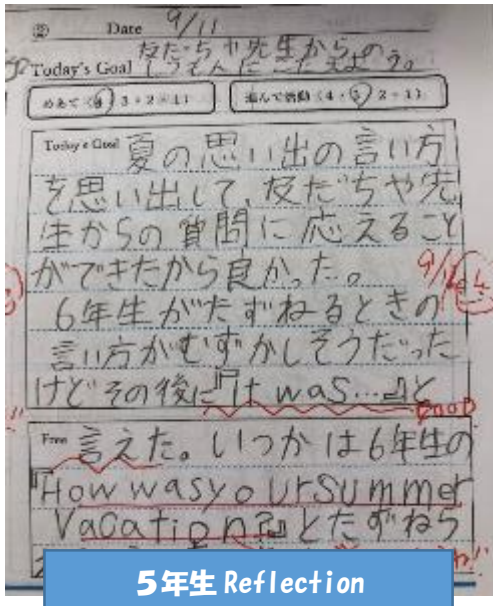 ② Date 9/11
Today's Goal 友だちや先生からの
しつもんにこたえよう。
めあて (④ 3・2・1) 進んで活動 (4・③ 2・1)
Today's Goal 夏の思い出の言い方
を思い出して、友だちや先
生からの質問に応えること
ができたから良かった。
6年生がたずねるときの
言い方がむずかしそうだった
けどその後に『It was...』と
GOOD
Free 言えた。いつかは6年生の
『How was your summer
Vacation?』とたずねら
5年生 Reflection